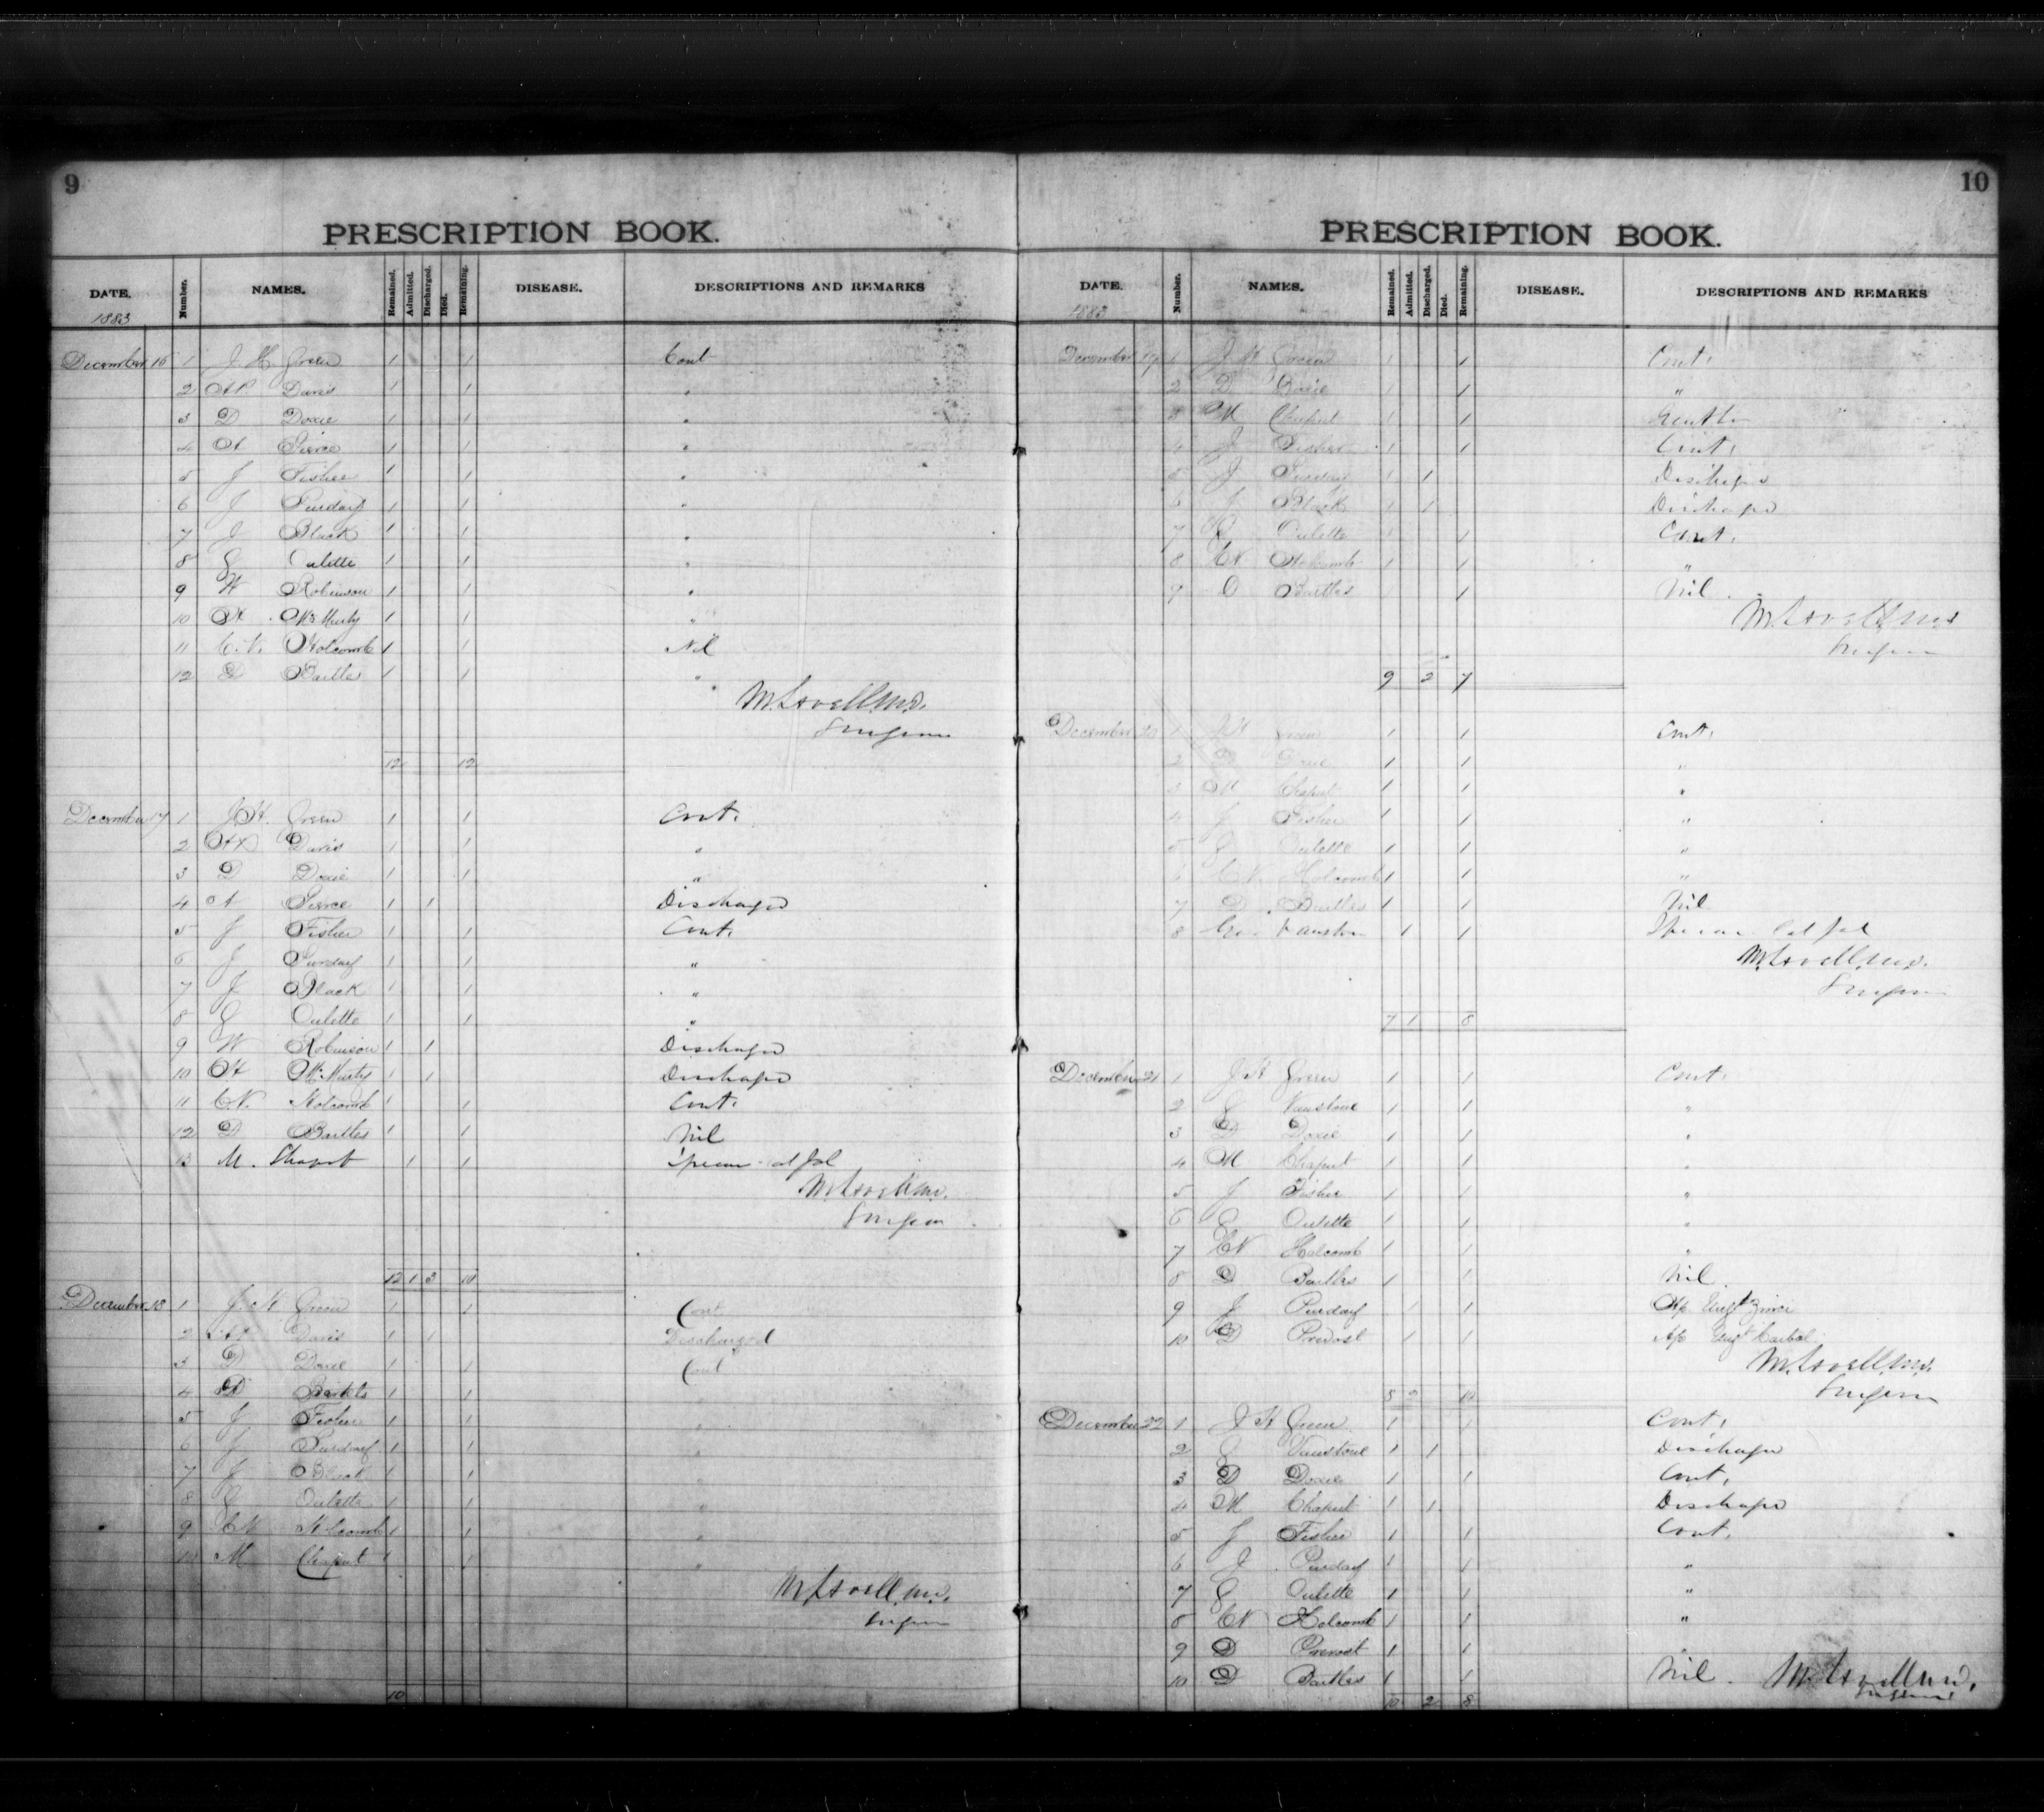 9
PRESCRIPTION BOOK.
DATE. Number. NAMES. Remained. Admitted. Discharged. Died. Remaining. DISEASE. DESCRIPTIONS AND REMARKS
1883
December 16 1 J. H. Green 1 1 Cont
2 Davis 1 1 "
3 D Doxie 1 1 "
4 A Pierce 1 1 "
5 J Fisher 1 1 "
6 J Purday 1 1 "
7 J Black 1 1 "
8 E Oulette 1 1 "
9 W Robinson 1 1 "
10 H McMurty 1 1 "
11 C. N. Holcomb 1 1 Nil
12 D Bartles 1 1 "
M. Lovell M.D.
Surgeon
12 12
December 17 1 J. H. Green 1 1 Cont.
2 Davis 1 1 "
3 D Doxie 1 1 "
4 A Pierce 1 1 Discharged
5 J Fisher 1 1 Cont.
6 J Purday 1 1 "
7 J Black 1 1 "
8 E Oulette 1 1 "
9 W Robinson 1 1 Discharged
10 H McMurty 1 1 Discharged
11 C.N. Holcomb 1 1 Cont.
12 D Bartles 1 1 Nil
13 M. Chaput 1 1
M. Lovell M.D.
Surgeon
12 1 3 10
December 18 1 J. H. Green 1 1 Cont
2 Davis 1 1 Discharged
3 D Doxie 1 1 Cont
4 D Bartels 1 1 "
5 J Fisher 1 1 "
6 J Purday 1 1 "
7 J Black 1 1 "
8 E Oulette 1 1 "
9 CN Holcomb 1 1 "
10 M Chaput 1 1 "
M. Lovell M.D.
Surgeon
10
10
PRESCRIPTION BOOK.
DATE. Number. NAMES. Remained. Admitted. Discharged. Died. Remaining. DISEASE. DESCRIPTIONS AND REMARKS
1883
December 19 1 J H Green 1 1 Cont.
2 D Doxie 1 1 "
3 M Chaput 1 1
4 J Fisher 1 1 Cont.
5 J Purday 1 1 Discharged
6 J Black 1 1 Discharged
7 E Oulette 1 1 Cont.
8 CN Holcomb 1 1 "
9 D Bartles 1 1 Nil
M. Lovell M.D.
Surgeon
9 2 7
December 20 1 J H Green 1 1 Cont.
2 D Doxie 1 1 "
3 M Chaput 1 1 "
4 J Fisher 1 1 "
5 E Oulette 1 1 "
6 C N. Holcomb 1 1 "
7 D. Bartles 1 1 Nil
8 Vanston 1 1
M. Lovell M.D.
Surgeon
7 1 8
December 21 1 J H Green 1 1 Cont.
2 E Vanstone 1 1 "
3 D Doxie 1 1 "
4 M Chaput 1 1 "
5 J Fisher 1 1 "
6 E Oulette 1 1 "
7 CN Holcomb 1 1 "
8 D Bartles 1 1 Nil.
9 J Purday 1 1 Ap Ungt Zinci
10 D Prevost 1 1 Ap Ungt Carbol.
M. Lovell M.D.
Surgeon
8 2 10
December 22 1 J H Green 1 1 Cont.
2 E Vanstone 1 1 Discharged
3 D Doxie 1 1 Cont.
4 M Chaput 1 1 Discharged
5 J Fisher 1 1 Cont.
6 J Purday 1 1 "
7 E Oulette 1 1 "
8 CN Holcomb 1 1 "
9 D Prevost 1 1
10 D Bartles 1 1 Nil. M. Lovell M.D.
Surgeon
10 2 8